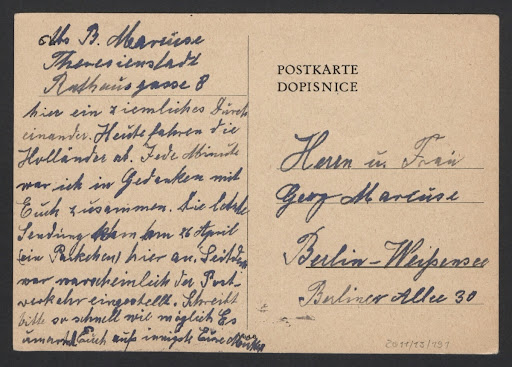 Abs B. Marcuse
Theresienstadt
Rathausgasse 8
hier ein ziemliches Durch
einander. Heute fahren die
Holländer ab. Jede Minute
war ich in Gedanken mit
Euch zusammen. Die letzte
Sendung kam am 26 April
(ein Päckchen) hier an. Seitdem
war warscheinlich der Post-
verkehr eingestellt. Schreibt
bitte so schnell wie möglich Es
umarmt Euch aufs innigste Eure
POSTKARTE
DOPISNICE
Herrn u. Frau
Georg Marcuse
Berlin-Weißensee
Berliner Allee 30
2011/13/191